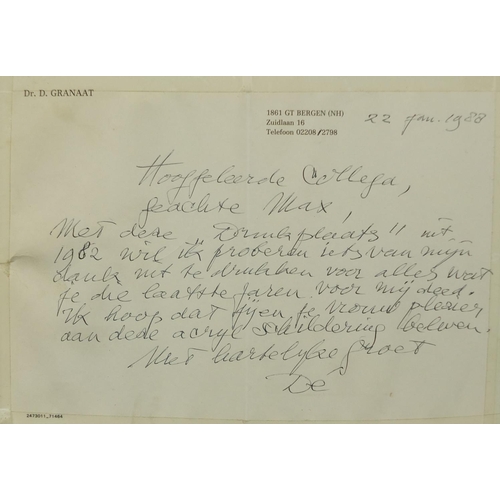 Dr. D. GRANAAT
1861 GT BERGEN (NH)
Zuidlaan 16
Telefoon 02208/2798
22 jan. 1988
Hooggeleerde Collega,
geachte Max,
Met deze "Drinkplaats" uit
1982 wil ik proberen iets van mijn
dank uit te drukken voor alles wat
je die laatste jaren voor mij deed.
Ik hoop dat jij en je vrouw plezier
aan deze acryl schildering beleven.
Met hartelijke groet
Dé
2673011_71484